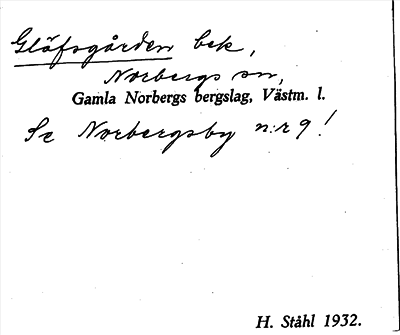 Glöfsgården bek,
Norbergs sn,
Gamla Norbergs bergslag, Västm. l.
Se Norbergsby n:r 9!
H. Ståhl 1932.